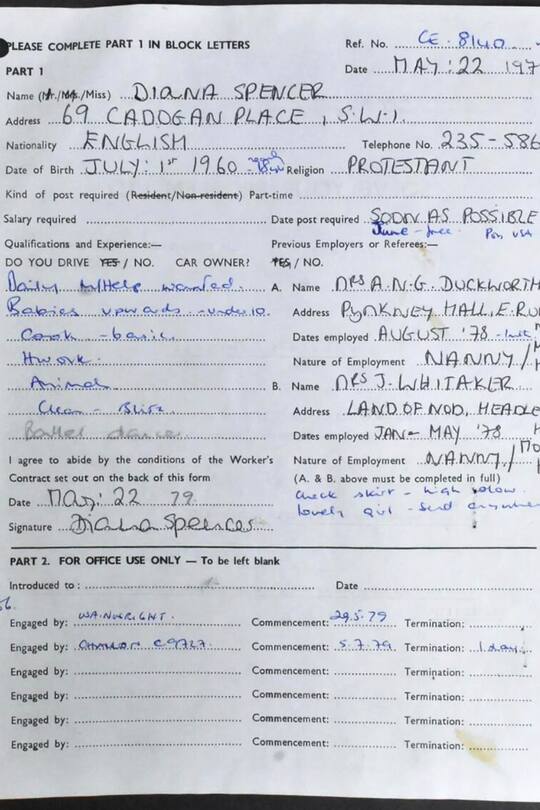 PLEASE COMPLETE PART 1 IN BLOCK LETTERS
Ref. No. CE. 8140
PART 1
Date MAY: 22 197
Name (Mr./Mrs./Miss) DIANA SPENCER
Address 69 CADOGAN PLACE, S.W.1.
Nationality ENGLISH Telephone No. 235-586
Date of Birth JULY: 1st 1960 Religion PROTESTANT
Kind of post required (Resident/Non-resident) Part-time
Salary required Date post required SOON AS POSSIBLE
June - free USA
Qualifications and Experience:— Previous Employers or Referees:—
DO YOU DRIVE YES / NO. CAR OWNER? YES / NO.
Daily M/Help wanted. A. Name MRS A.N.G. DUCKWORTH
Babies upwards - under 10. Address PYNKNEY HALL, E.RU
Cook - basic Dates employed AUGUST '78
Hwork. Nature of Employment NANNY/
Animal B. Name MRS J. WHITAKER
Clean - Address LAND OF NOD, HEADLE
Ballet dance Dates employed JAN - MAY '78
I agree to abide by the conditions of the Worker's Nature of Employment NANNY/
Contract set out on the back of this form (A. & B. above must be completed in full)
Date May: 22 79. check skirt - high
Signature Diana Spencer lovely girl - send anywhere
PART 2. FOR OFFICE USE ONLY — To be left blank
Introduced to: Date
Engaged by: WAINWRIGHT. Commencement: 29.5.79 Termination:
Engaged by: C9727. Commencement: 5.7.79 Termination: 1 day.
Engaged by: Commencement: Termination:
Engaged by: Commencement: Termination:
Engaged by: Commencement: Termination:
Engaged by: Commencement: Termination: